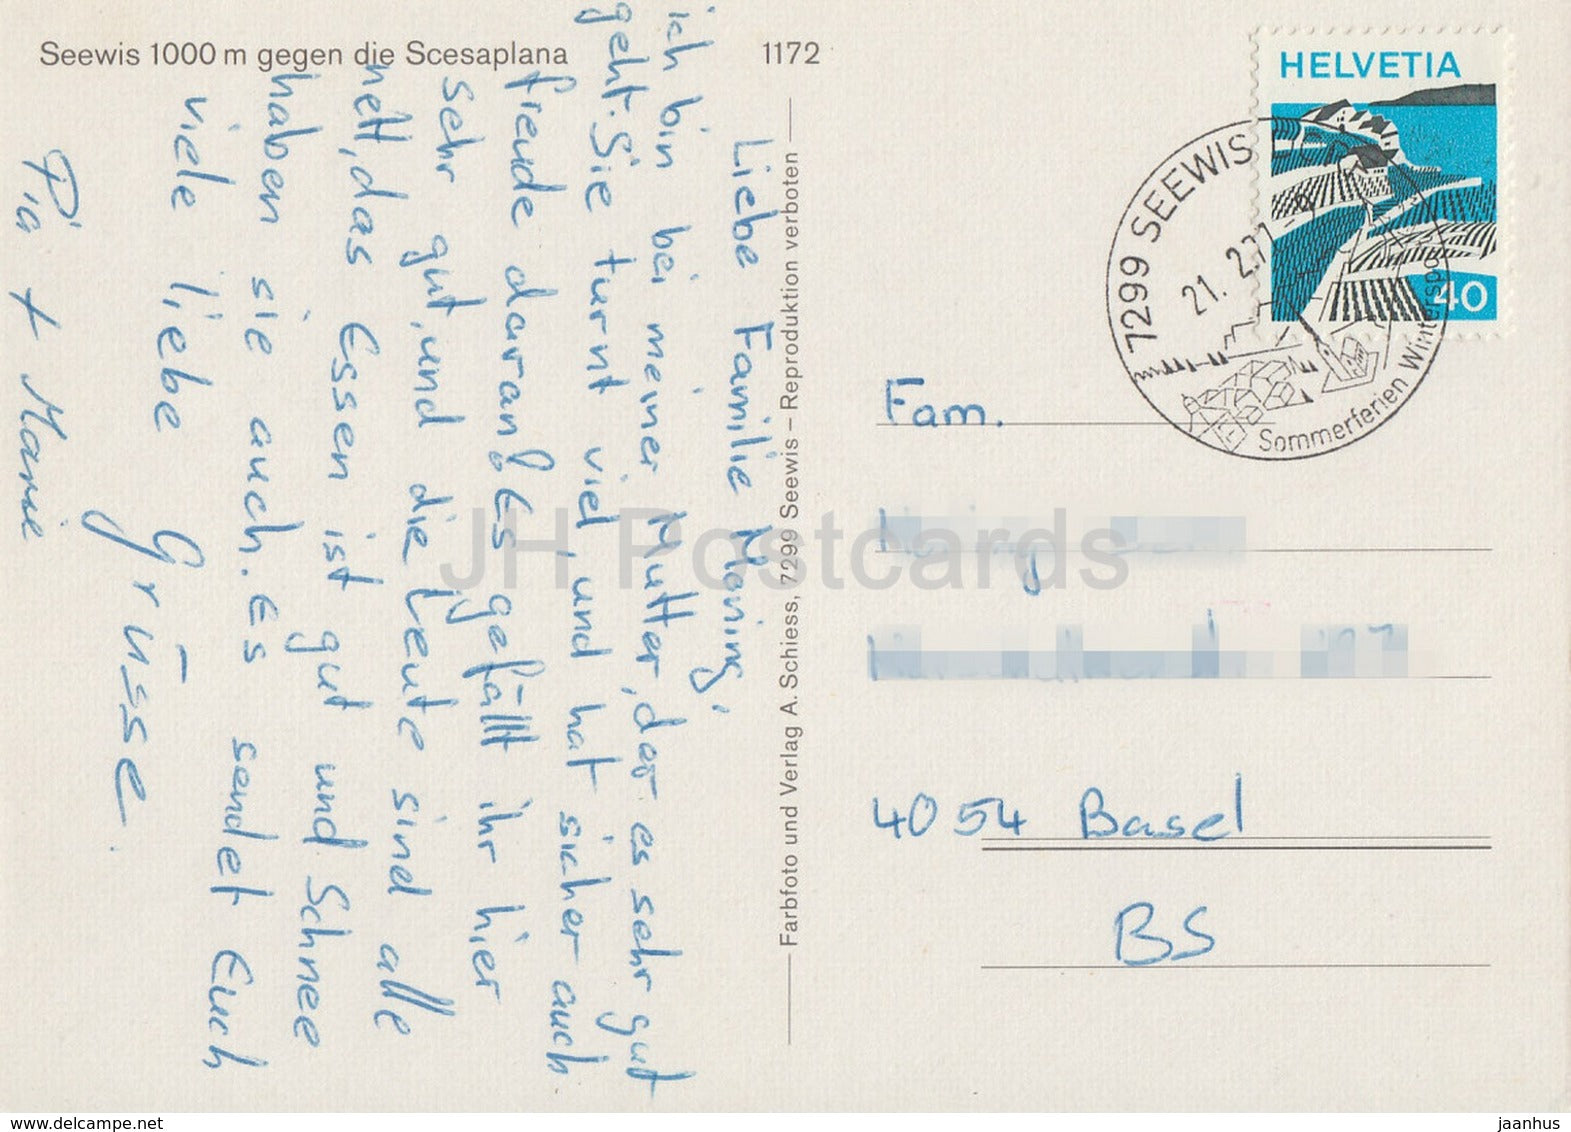 Seewis 1000 m gegen die Scesaplana
1172
Liebe Familie Moning,
ich bin bei meiner Mutter, der es sehr gut
geht. Sie turnt viel, und hat sicher auch
freude daran. Es gefällt ihr hier
sehr gut, und die Leute sind alle
nett, das Essen ist gut und Schnee
haben sie auch. Es sendet Euch
viele liebe Grüsse.
Pia + Marie
Farbfoto und Verlag A. Schiess, 7299 Seewis – Reproduktion verboten
HELVETIA
40
7299 SEEWIS
21. 2.
Sommerferien Winterspo
Fam.
4054 Basel
BS
JH Postcards
delcampe.net
jaanhus